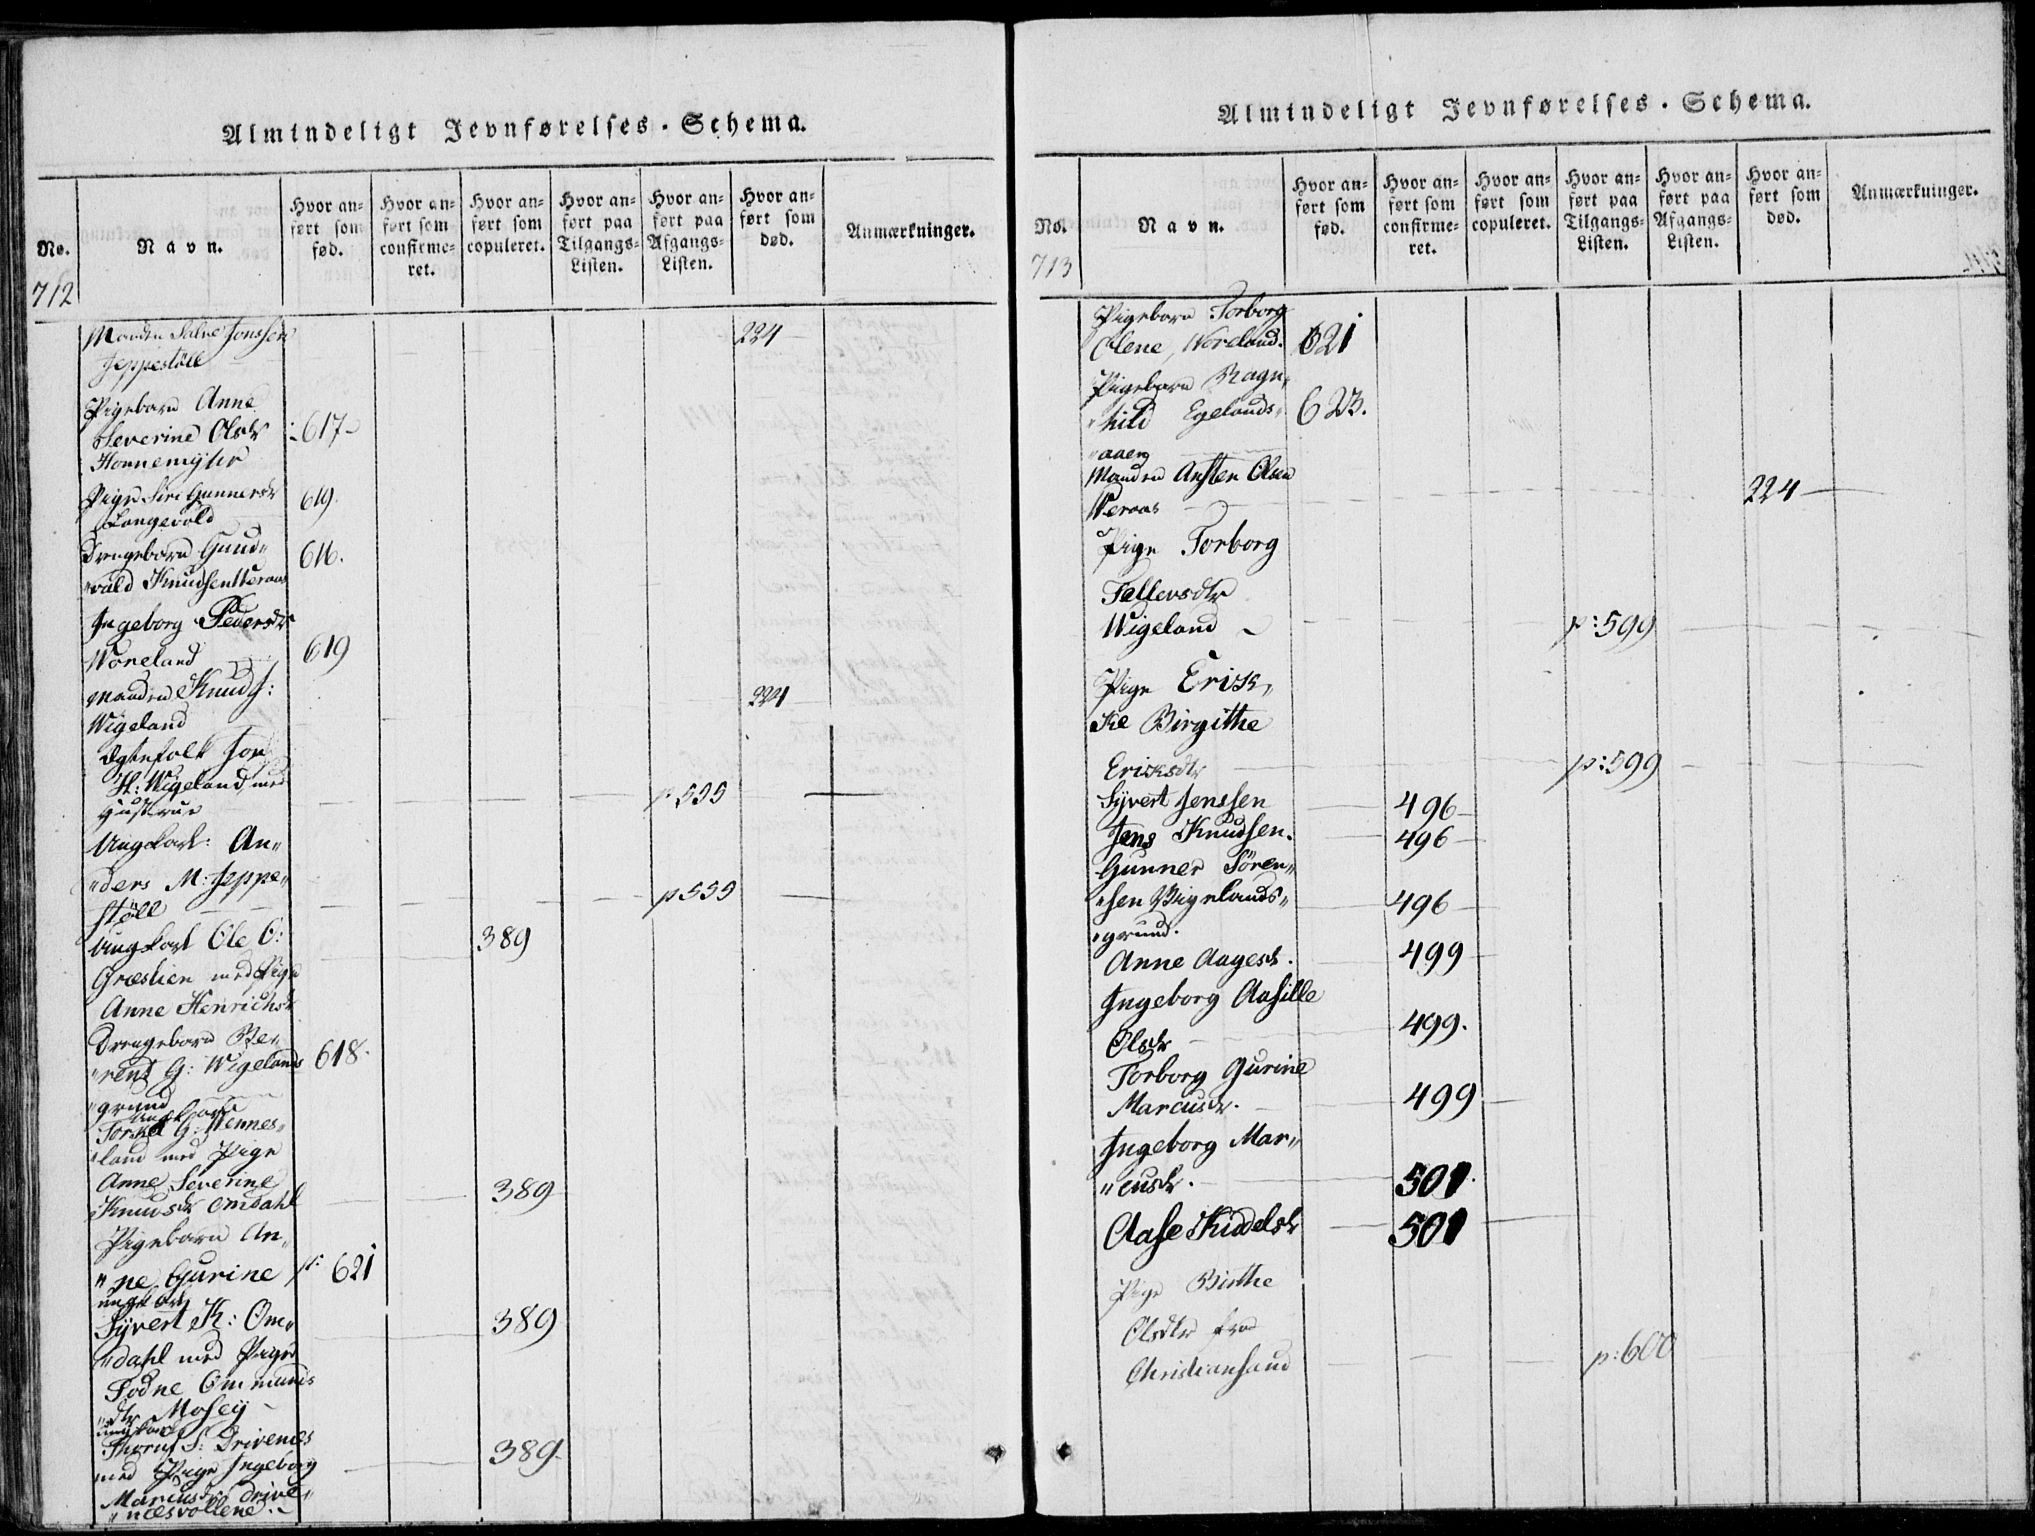 Almindeligt Jevnførelses-Schema.
No.
Navn.
Hvor an-
ført som
fød.
Hvor an-
ført som
confirme-
ret.
Hvor an-
ført som
copuleret.
Hvor an-
ført paa
Tilgangs-
Listen.
Hvor an-
ført paa
Afgangs-
Listen.
Hvor an-
ført som
død.
Anmærkninger.
712
Manden Salve Jonssen 224
Jeppestöll
Pigebarn Anne
Severine Olsdr 617
Honnemyhr
Pige Siri Gunnersdr 619.
Langevold
Drengebarn Gund„ 616.
„vald Knudsen Weraas
Ingeborg Pedersdr
Woreland 619
Manden Knud J: 224
Wigeland
Ægtefolk Jon
H: Wigeland med p 599
Hustrue
Ungkarl: An„
„ders M: Jeppe„
stöll p 599
Ungkarl Ole O: 389
Græslien med Pige
Anne Henrichsdr
Drengebarn Be„
„rent G: Wigelands 618.
„grund
Ungkarl
Torkel G: Wennes„
„land med Pige
Anne Severine
Knudsdr Omdahl 389
Pigebarn An„
„ne Gurine p: 621
ungkarl
Syvert K: Om„ 389
„dahl med Pige
Todne Ommunds
„dtr Mosey
ungkarl
S: Drivenes 389
med Pige Ingeborg
Marcusdr Drive„
„nesvollene.
Almindeligt Jevnførelses-Schema.
No.
Navn.
Hvor an-
ført som
fød.
Hvor an-
ført som
confirme-
ret.
Hvor an-
ført som
copuleret.
Hvor an-
ført paa
Tilgangs-
Listen.
Hvor an-
ført paa
Afgangs-
Listen.
Hvor an-
ført som
død.
Anmærkninger.
713
Pigebarn Torborg
Olene, Woreland. 621
Pigebarn Ragn„
„hild Egelands„ 623.
„aaen
Manden Ansten Olsen 224
Weraas
Pige Torborg
Tallevsdtr
Wigeland p: 599
Pige Erik„
ke Birgithe
Eriksdtr p: 599
Syvert Jenssen 496
Jens Knudsen. 496
Gunner Sören„
„sen Wigelands„ 496
„grund.
Anne Aagesdr. 499
Ingeborg Aasille
Olsdr 499.
Torborg Gurine
Marcusdr. 499
Ingeborg Mar„
„cusdr. 501.
Aase Kiddelsdr 501
Pige Birthe
Olsdtr fra
Christiansand p: 600